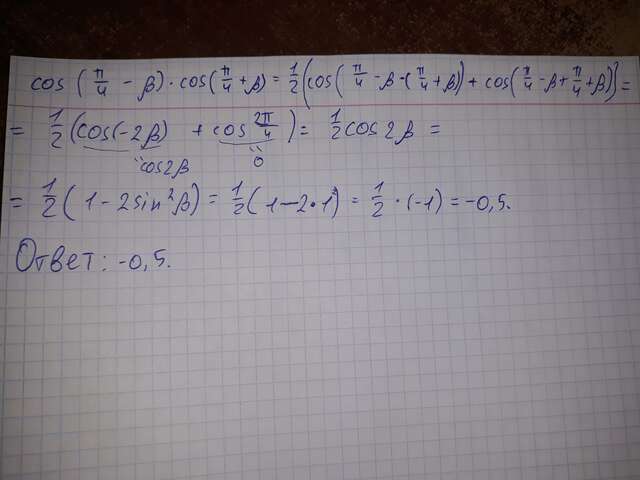 cos (π/4 - β) · cos(π/4 + β) = 1/2 (cos( π/4 - β - (π/4 + β)) + cos(π/4 - β + π/4 + β)) =
= 1/2 (cos(-2β) + cos 2π/4 ) = 1/2 cos 2β =
cos2β 0
= 1/2 ( 1 - 2sin²β) = 1/2 ( 1 - 2·1) = 1/2 · (-1) = -0,5.
Ответ: -0,5.